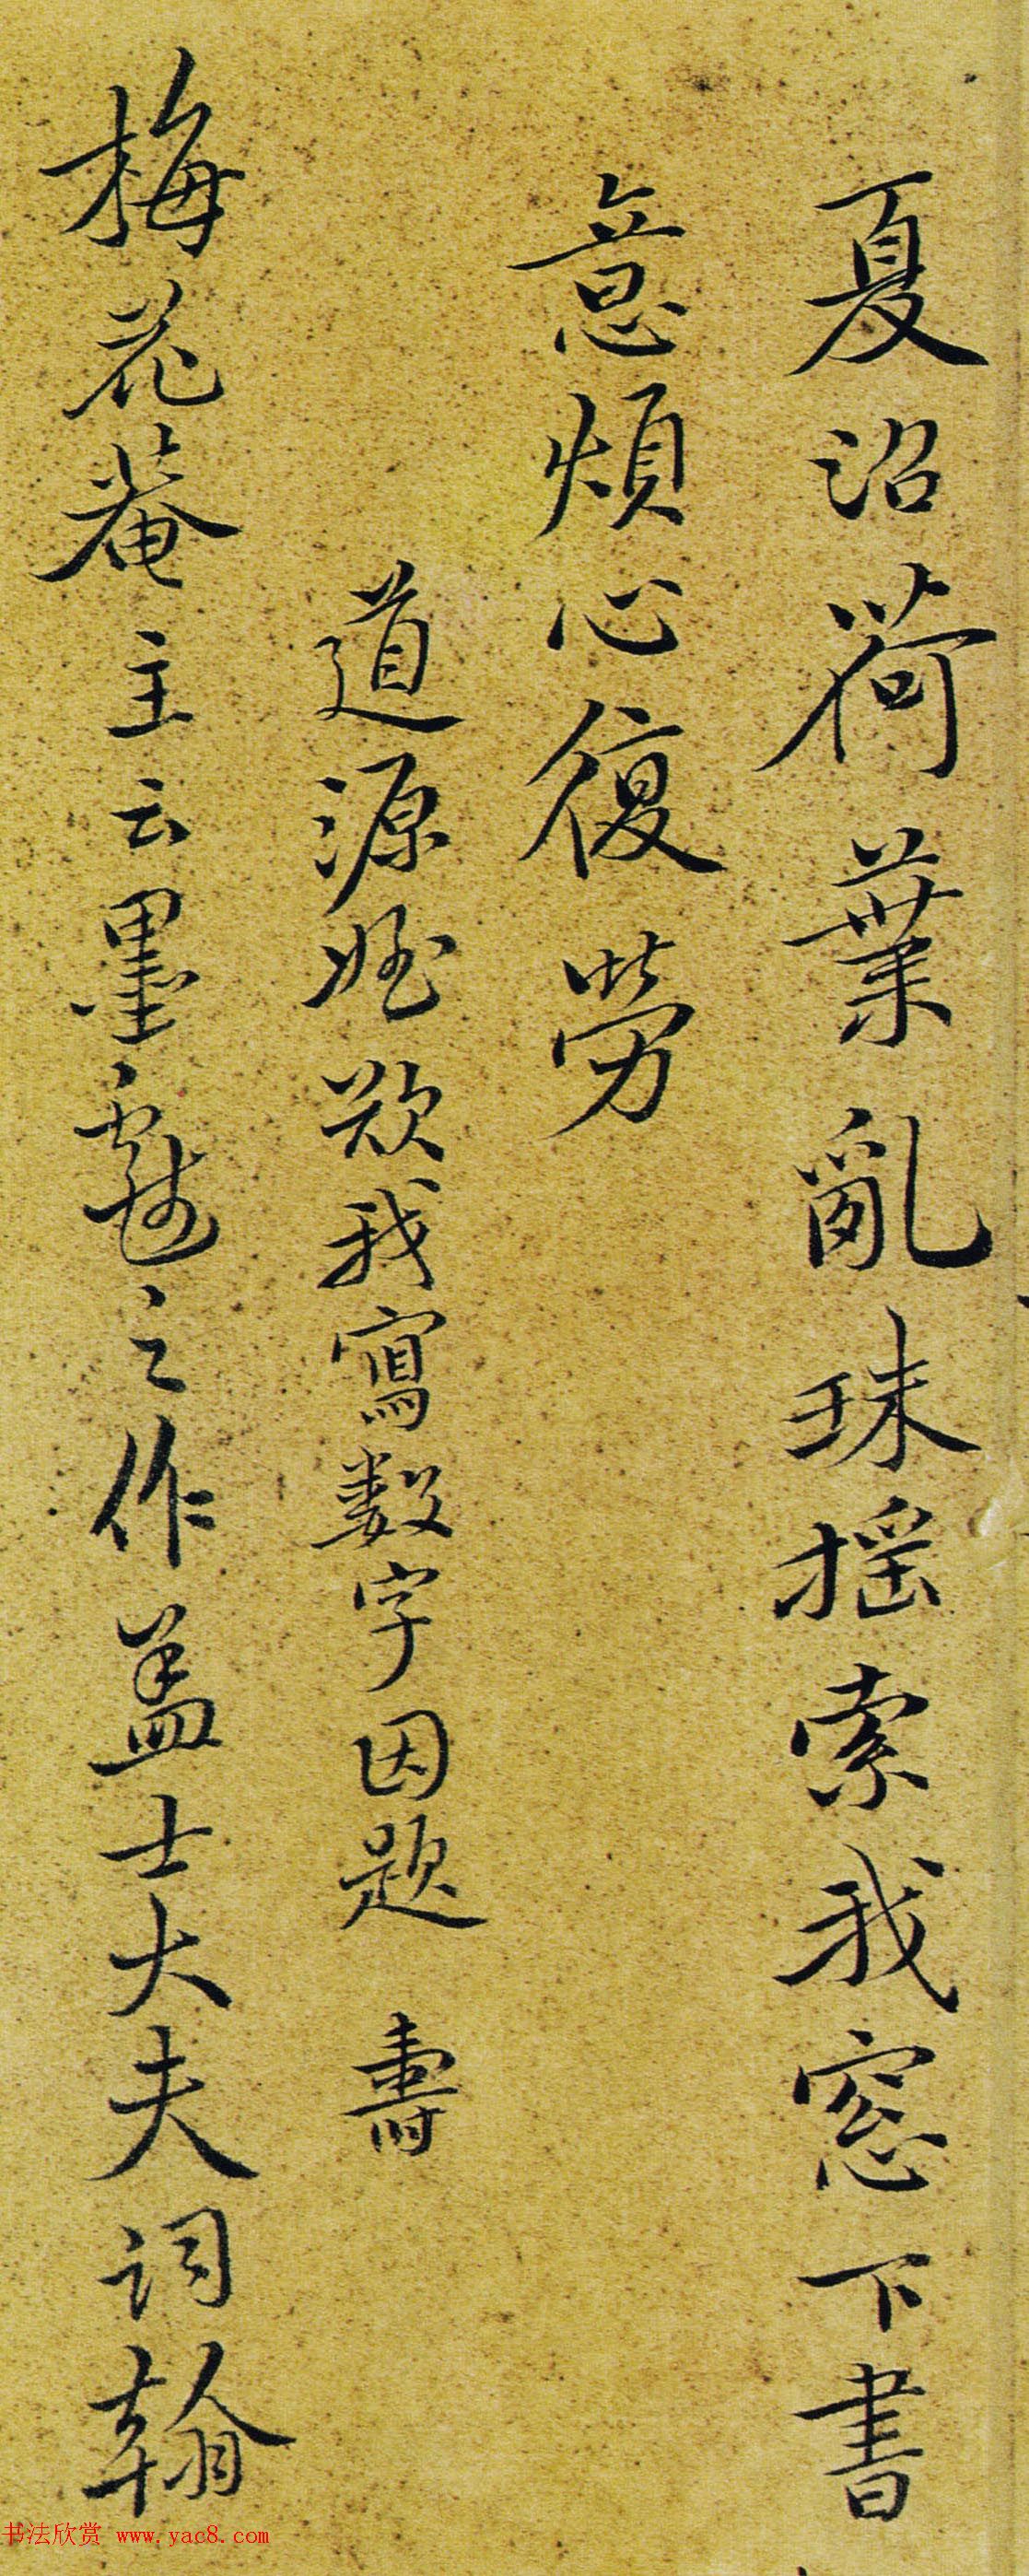 夏沼荷葉亂珠摇索我窓下書
意煩心復勞
道源姪欲我寫数字因題 壽
梅花菴主云墨戲之作盖士大夫詞翰
书法欣赏 www.yac8.com